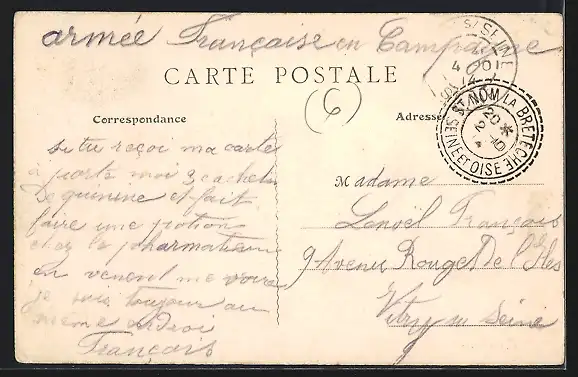 armée Française en Campagne
S/ SEINE
4
14
CARTE POSTALE
(6)
Correspondance
Adresse
ST NOM LA BRETECHE
20 *
2 - 10
SEINE ET OISE
si tu reçoi ma carte
a porte moi 3 cachets
De quinine et fait
faire une potion
chez le pharmatien
en venent me voire
je suis toujour au
même endroi
François
Madame
Lenoël François
9 Avenue Rouget De l'Iles
Vitry sur Seine